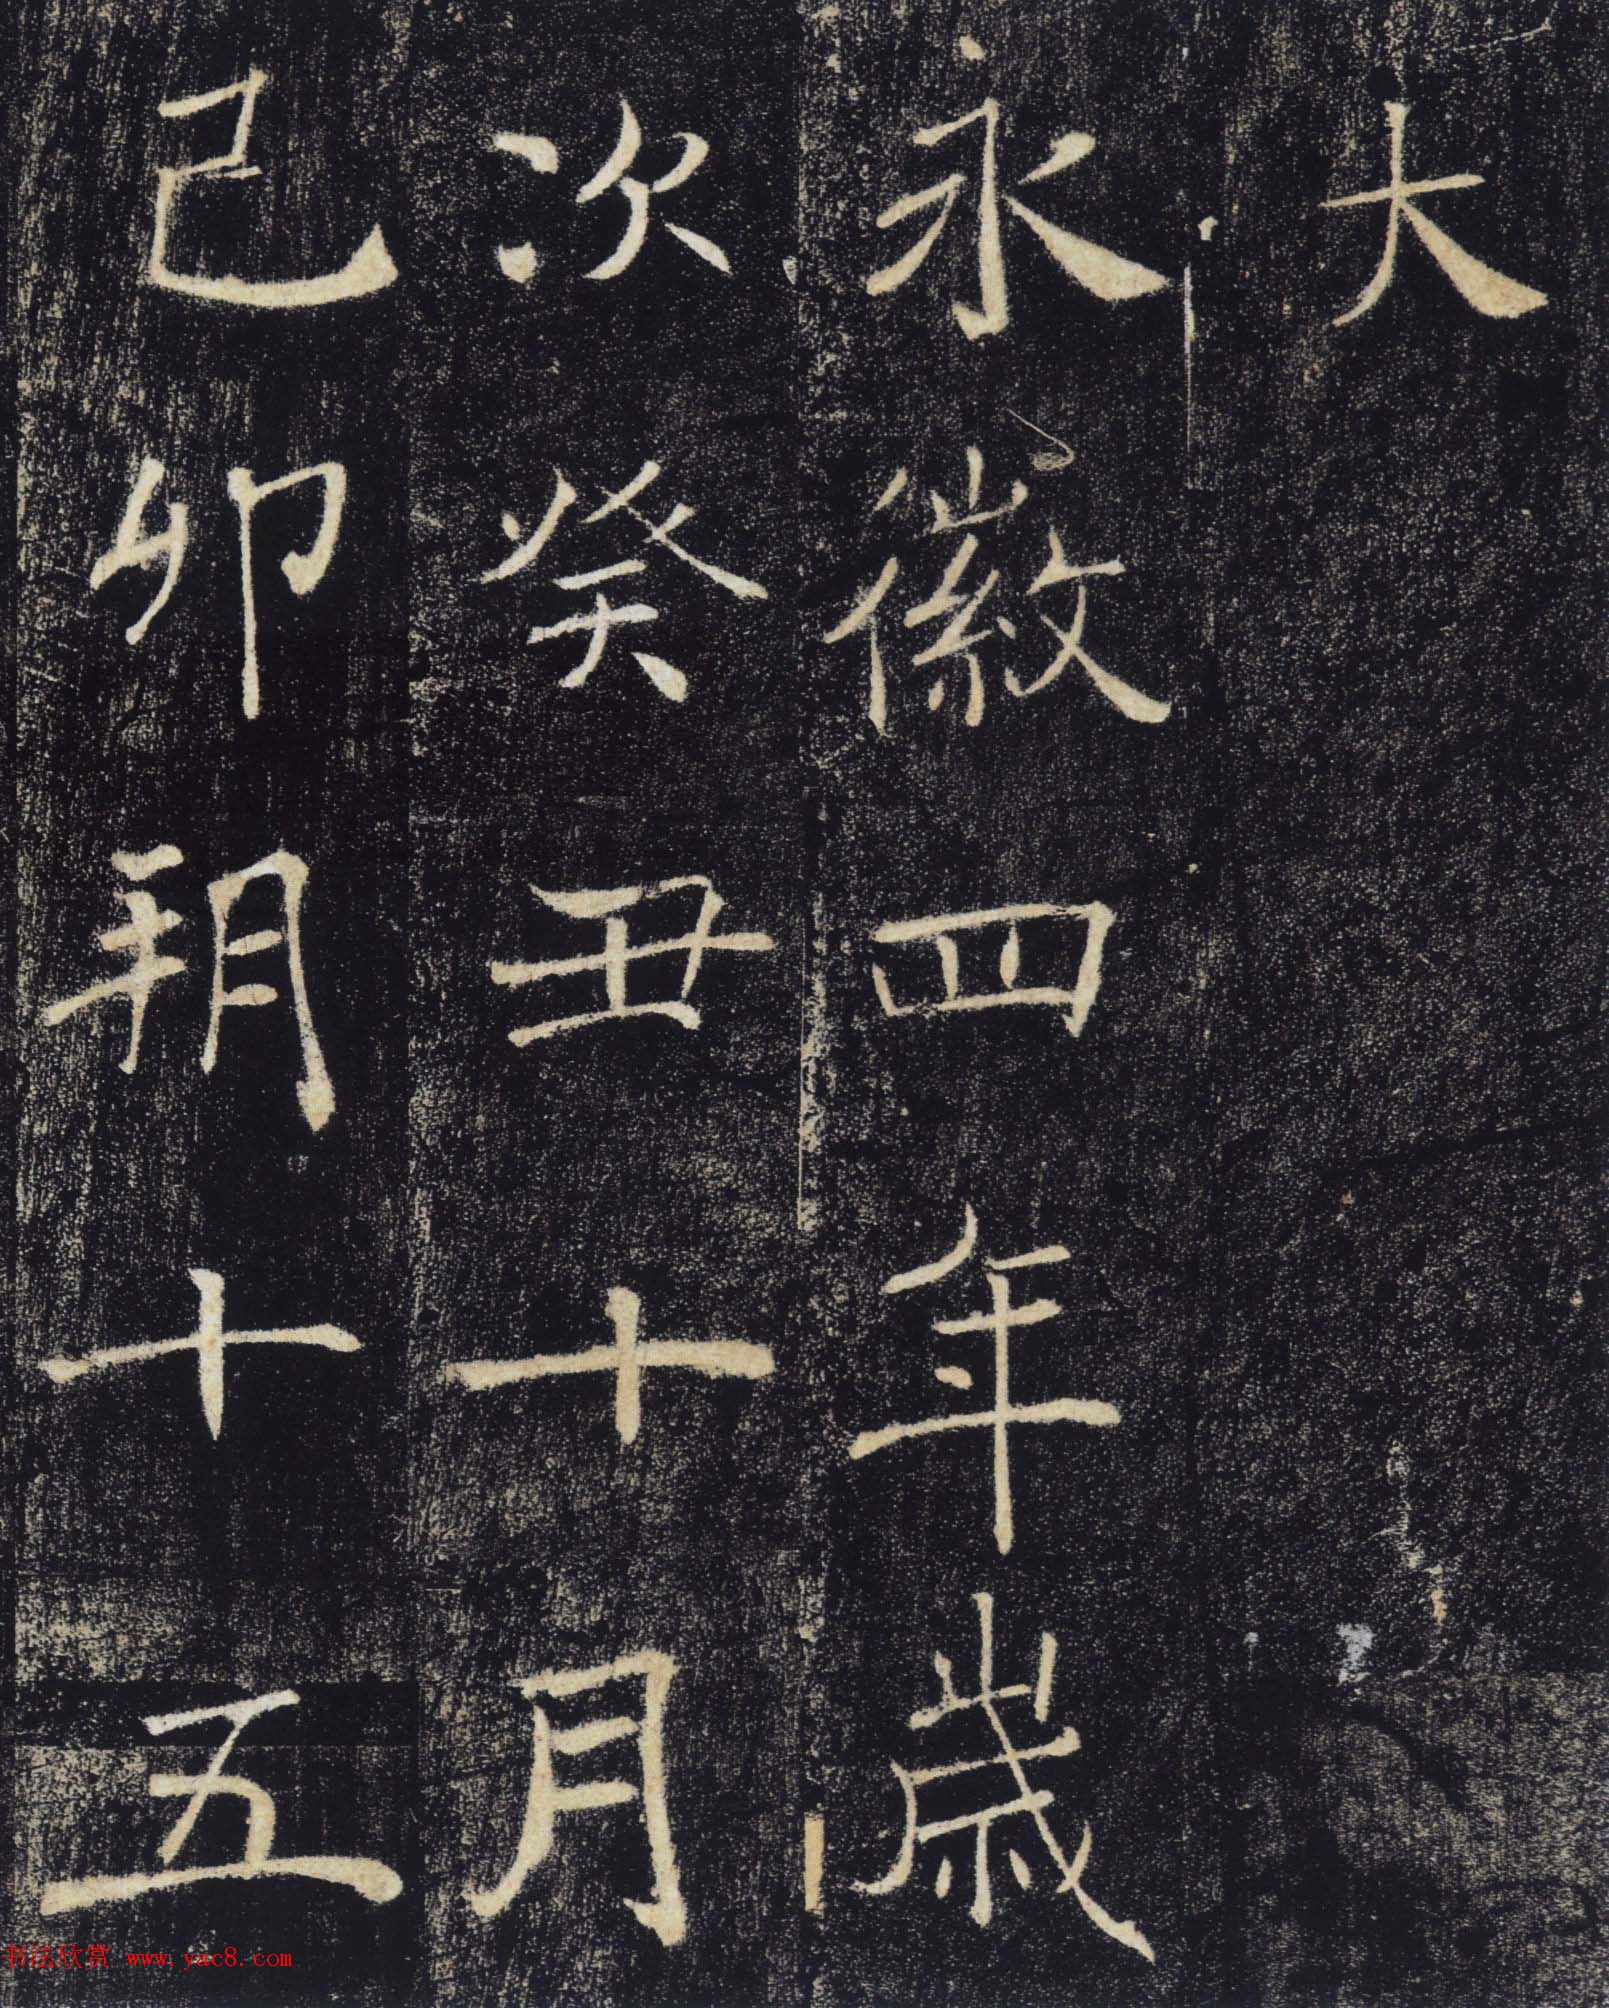 大
永徽四年歲
次癸丑十月
己卯朔十五
书法欣赏 www.yac8.com